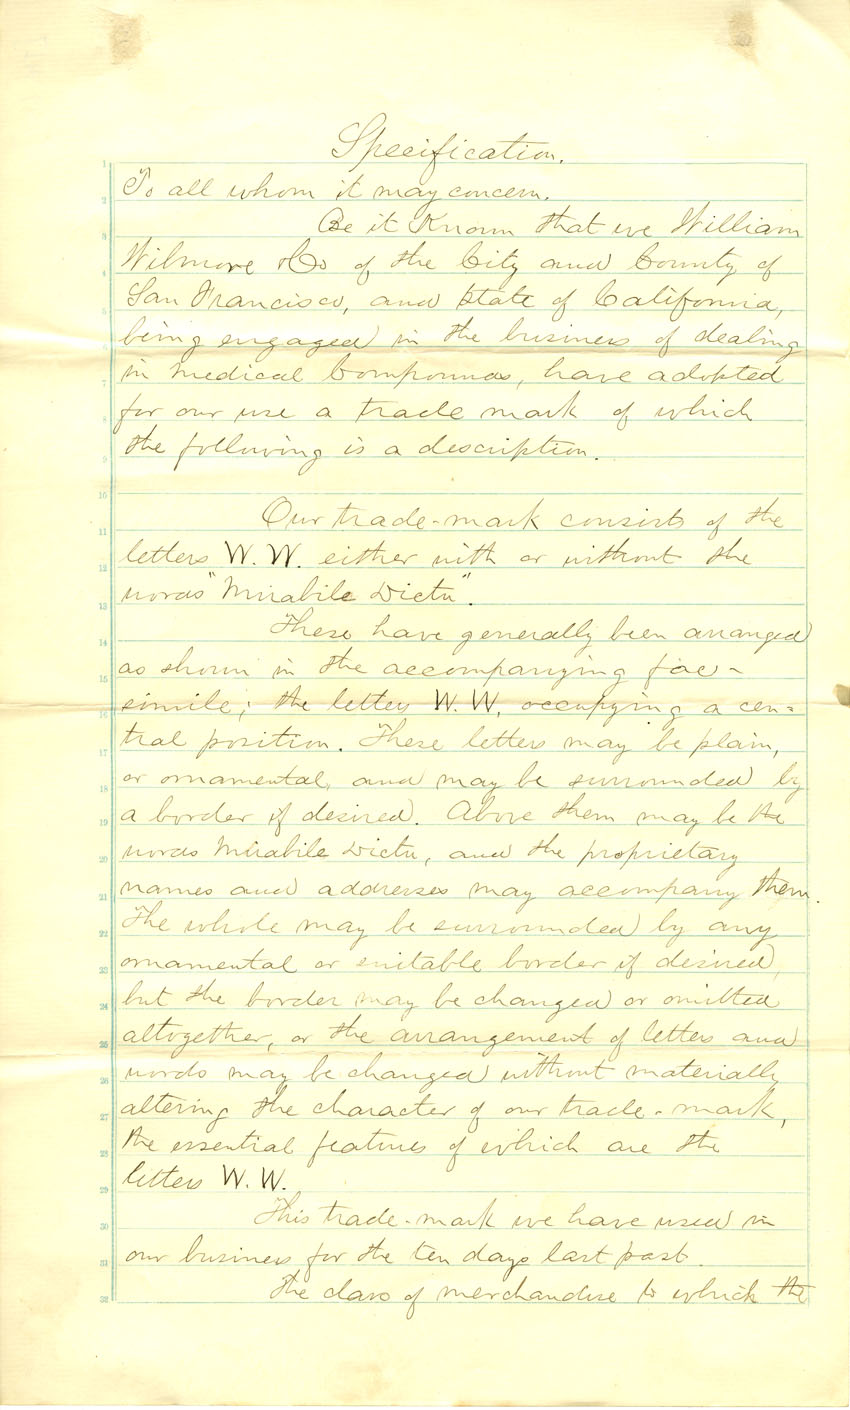 Specification.
To all whom it may concern.
Be it Known that we William
Wilmore & Co of the City and County of
San Francisco, and State of California,
being engaged in the business of dealing
in medical Compounds, have adopted
for our use a trade mark of which
the following is a description.
Our trade-mark consists of the
letters W. W. either with or without the
words "Mirabile Dictu".
These have generally been arranged
as shown in the accompanying fac-
simile; the letters W. W, occupying a cen-
tral position. These letters may be plain,
or ornamental, and may be surrounded by
a border if desired. Above them may be the
words Mirabile Dictu, and the proprietary
names and addresses may accompany them.
The whole may be surrounded by any
ornamental or suitable border if desired,
but the border may be changed or omitted
altogether, or the arrangement of letters and
words may be changed without materially
altering the character of our trade-mark,
the essential features of which are the
letters W. W.
This trade-mark we have used in
our business for the ten days last past.
The class of merchandise to which the
1
2
3
4
5
6
7
8
9
10
11
12
13
14
15
16
17
18
19
20
21
22
23
24
25
26
27
28
29
30
31
32